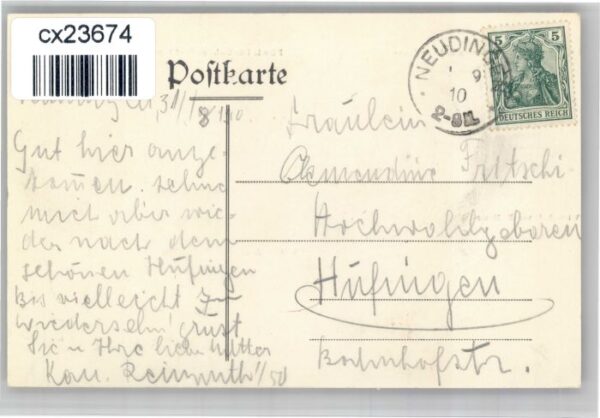 cx23674
Postkarte
NEUDING
9
10
2-3N.
5 5
DEUTSCHES REICH
31/8 10
Gut hier ange-
kommen. sehne
mich aber wie-
der nach dem
schönen Hüfingen
Bis vielleicht zum
Wiedersehn! grüst
Sie u Ihre liebe Mutter
Kon. Reinmuth
Fräulein
Fritschi
Hochwohlgeboren
Hüfingen
Bahnhofstr.